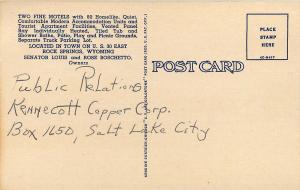 TWO FINE MOTELS with 82 Homelike, Quiet,
Comfortable Modern Accommodation Units and
Tourist Apartment Facilities, Vented Panel
Ray Individually Heated, Tiled Tub and
Shower Baths, Patio, Play and Picnic Grounds,
Separate Truck Parking Lot.
LOCATED IN TOWN ON U. S. 30 EAST
ROCK SPRINGS, WYOMING
SENATOR LOUIS and ROSE BOSCHETTO,
Owners
PLACE
STAMP
HERE
POST CARD
Public Relations
Kennecott Copper Corp.
Box 1650, Salt Lake City